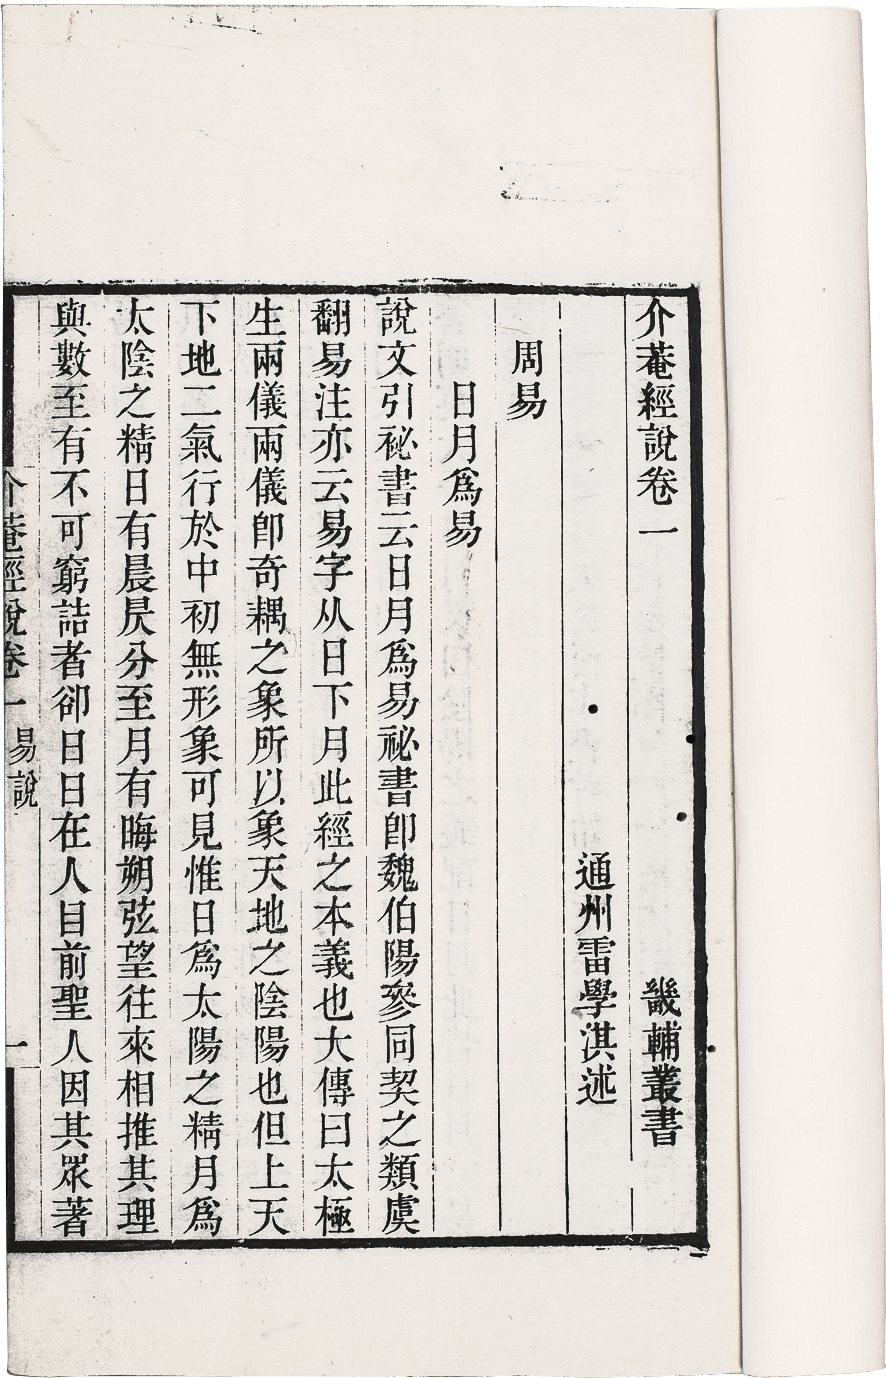 介菴經說卷一　畿輔叢書
通州雷學淇述
周易
日月爲易
說文引祕書云日月爲易祕書卽魏伯陽參同契之類虞
翻易注亦云易字从日下月此經之本義也大傳曰太極
生兩儀兩儀卽奇耦之象所以象天地之陰陽也但上天
下地二氣行於中初無形象可見惟日爲太陽之精月爲
太陰之精日有晨昃分至月有晦朔弦望往來相推其理
與數至有不可窮詰者卻日日在人目前聖人因其眾著
介菴經說卷一　易說　一